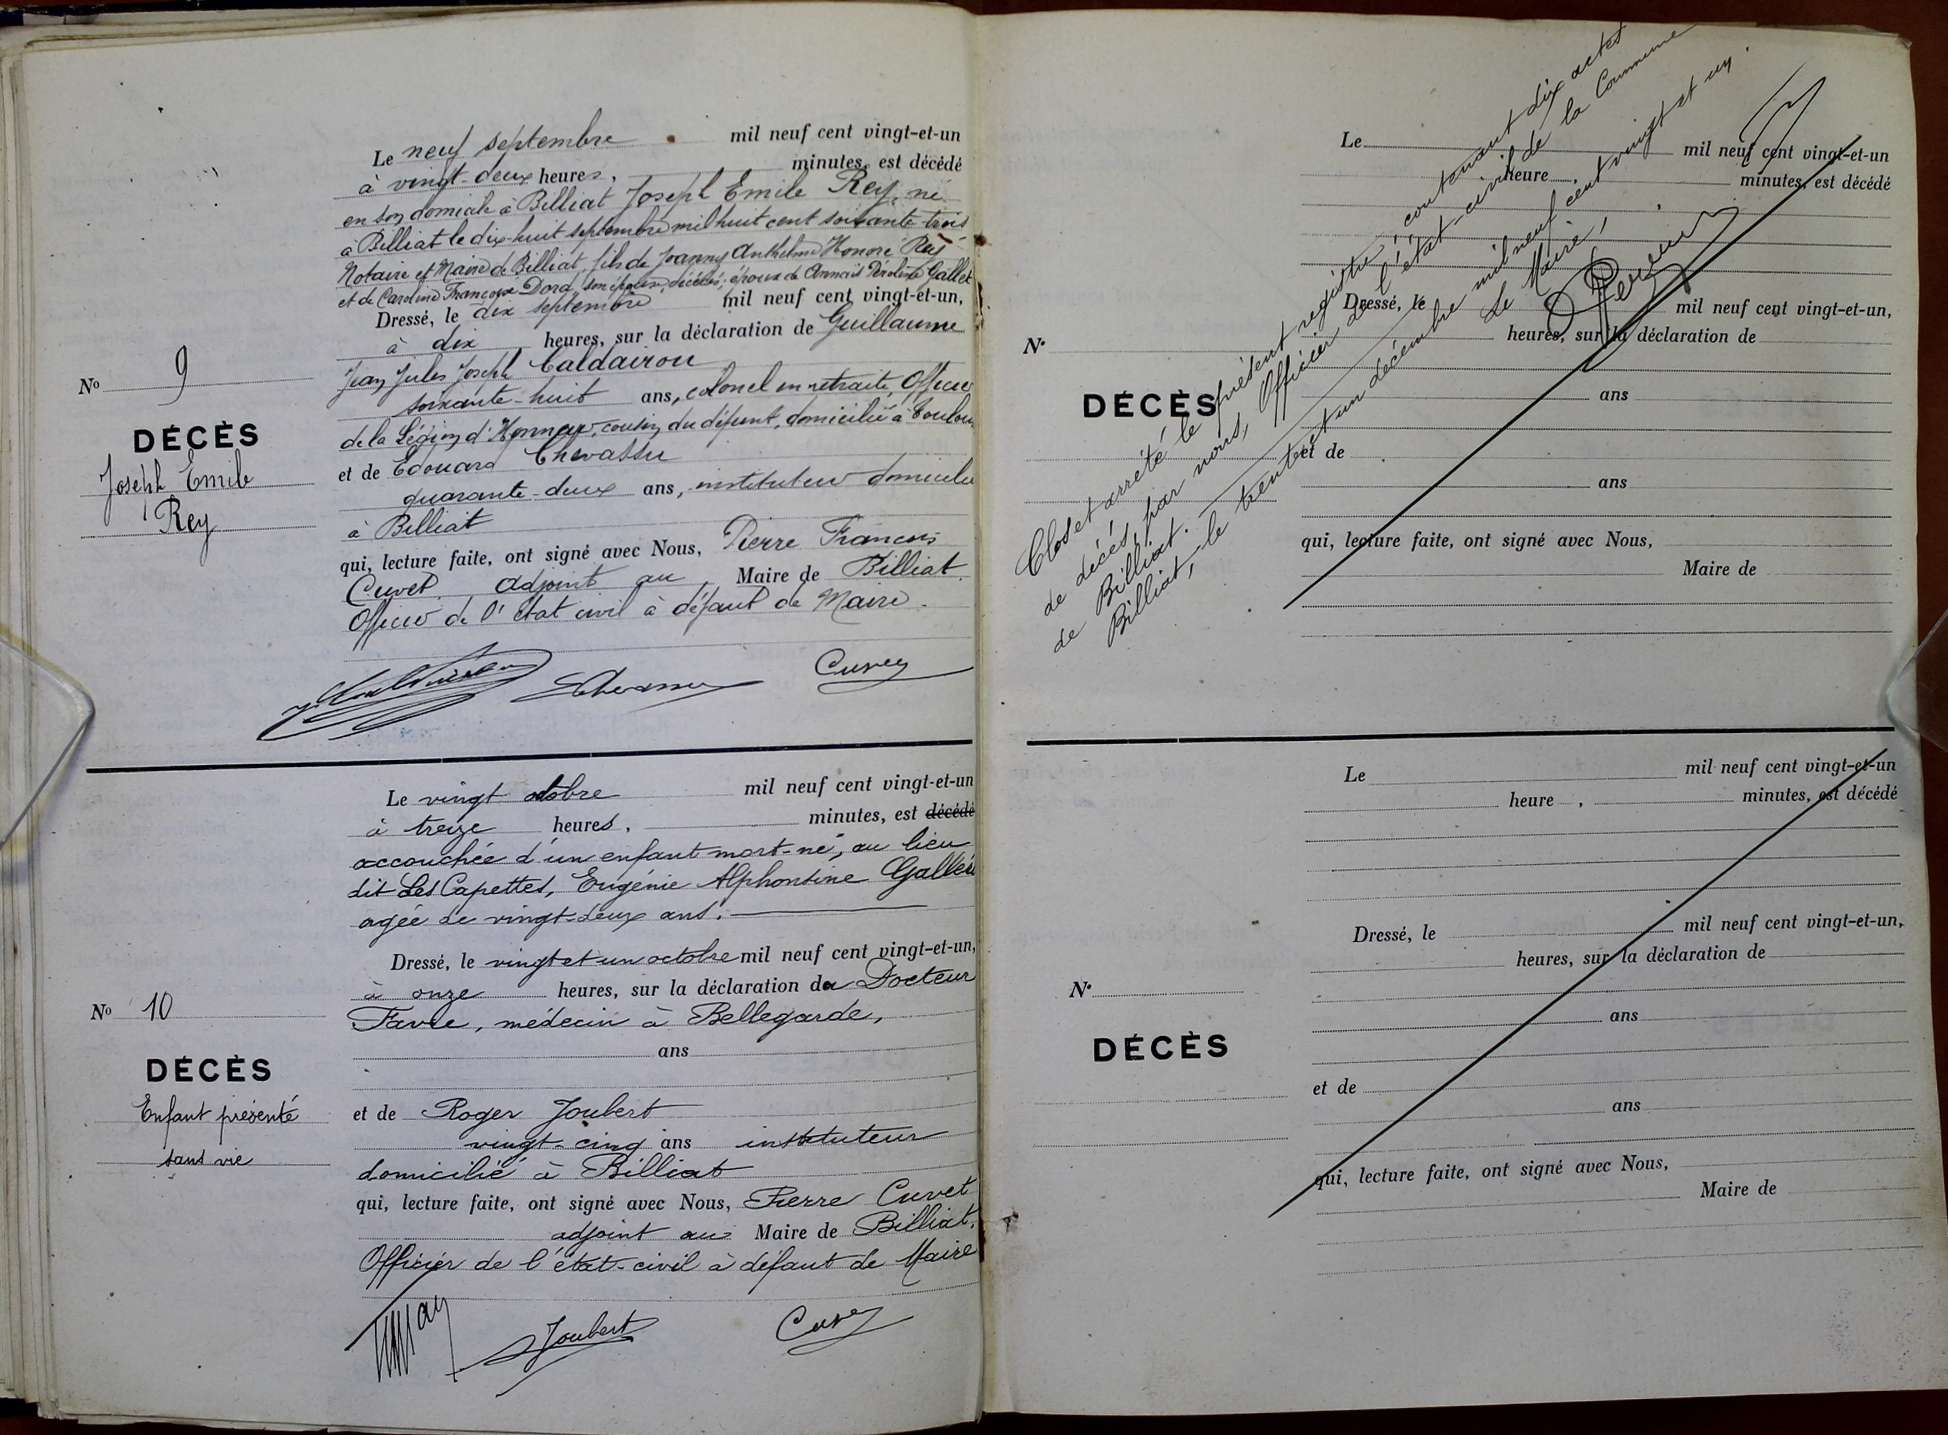 Le neuf septembre mil neuf cent vingt-et-un
à vingt-deux heures, minutes, est décédé
en son domicile à Billiat Joseph Emile Rey, né
à Billiat le dix-huit septembre mil huit cent soixante-trois
Notaire et Maire de Billiat, fils de Joanny Anthelme Honoré Rey
et de Caroline Françoise Dord, son épouse, décédés; époux de Annaïs Péroline Gallet
Dressé, le dix septembre mil neuf cent vingt-et-un,
à dix heures, sur la déclaration de Guillaume
Jean Jules Joseph Caldairou
soixante-huit ans, colonel en retraite, Officier
de la Légion d'Honneur, cousin du défunt, domicilié à Toulon
et de Edouard Chevassu
quarante-deux ans, instituteur domicilié
à Billiat
qui, lecture faite, ont signé avec Nous, Pierre François
Cuvet, adjoint au Maire de Billiat
Officier de l'état civil à défaut de Maire.
EChevassu Cuvet
No 9
DÉCÈS
Joseph Emile
Rey
Le vingt octobre mil neuf cent vingt-et-un
à treize heures, minutes, est décédé
accouchée d'un enfant mort-né, au lieu
dit Les Capettes, Eugénie Alphonsine
agée de vingt-deux ans.
Dressé, le vingt et un octobre mil neuf cent vingt-et-un,
à onze heures, sur la déclaration du Docteur
Favre, médecin à Bellegarde,
ans
et de Roger Joubert
vingt-cinq ans instituteur
domicilié à Billiat
qui, lecture faite, ont signé avec Nous, Pierre Cuvet
adjoint au Maire de Billiat,
Officier de l'état-civil à défaut de Maire
Joubert Cuvet
No 10
DÉCÈS
Enfant présenté
sans vie
Le mil neuf cent vingt-et-un
heure minutes, est décédé
Dressé, le mil neuf cent vingt-et-un,
heures, sur la déclaration de
ans
et de
ans
qui, lecture faite, ont signé avec Nous,
Maire de
N°
DÉCÈS
Clos et arrêté le présent registre, contenant dix actes
de décès, par nous, Officier de l'état-civil de la Commune
de Billiat.
Billiat, le trente et un décembre mil neuf cent vingt et un.
Le Maire,
Le mil neuf cent vingt-et-un
heure , minutes, est décédé
Dressé, le mil neuf cent vingt-et-un,
heures, sur la déclaration de
ans
et de
ans
qui, lecture faite, ont signé avec Nous,
Maire de
N°
DÉCÈS